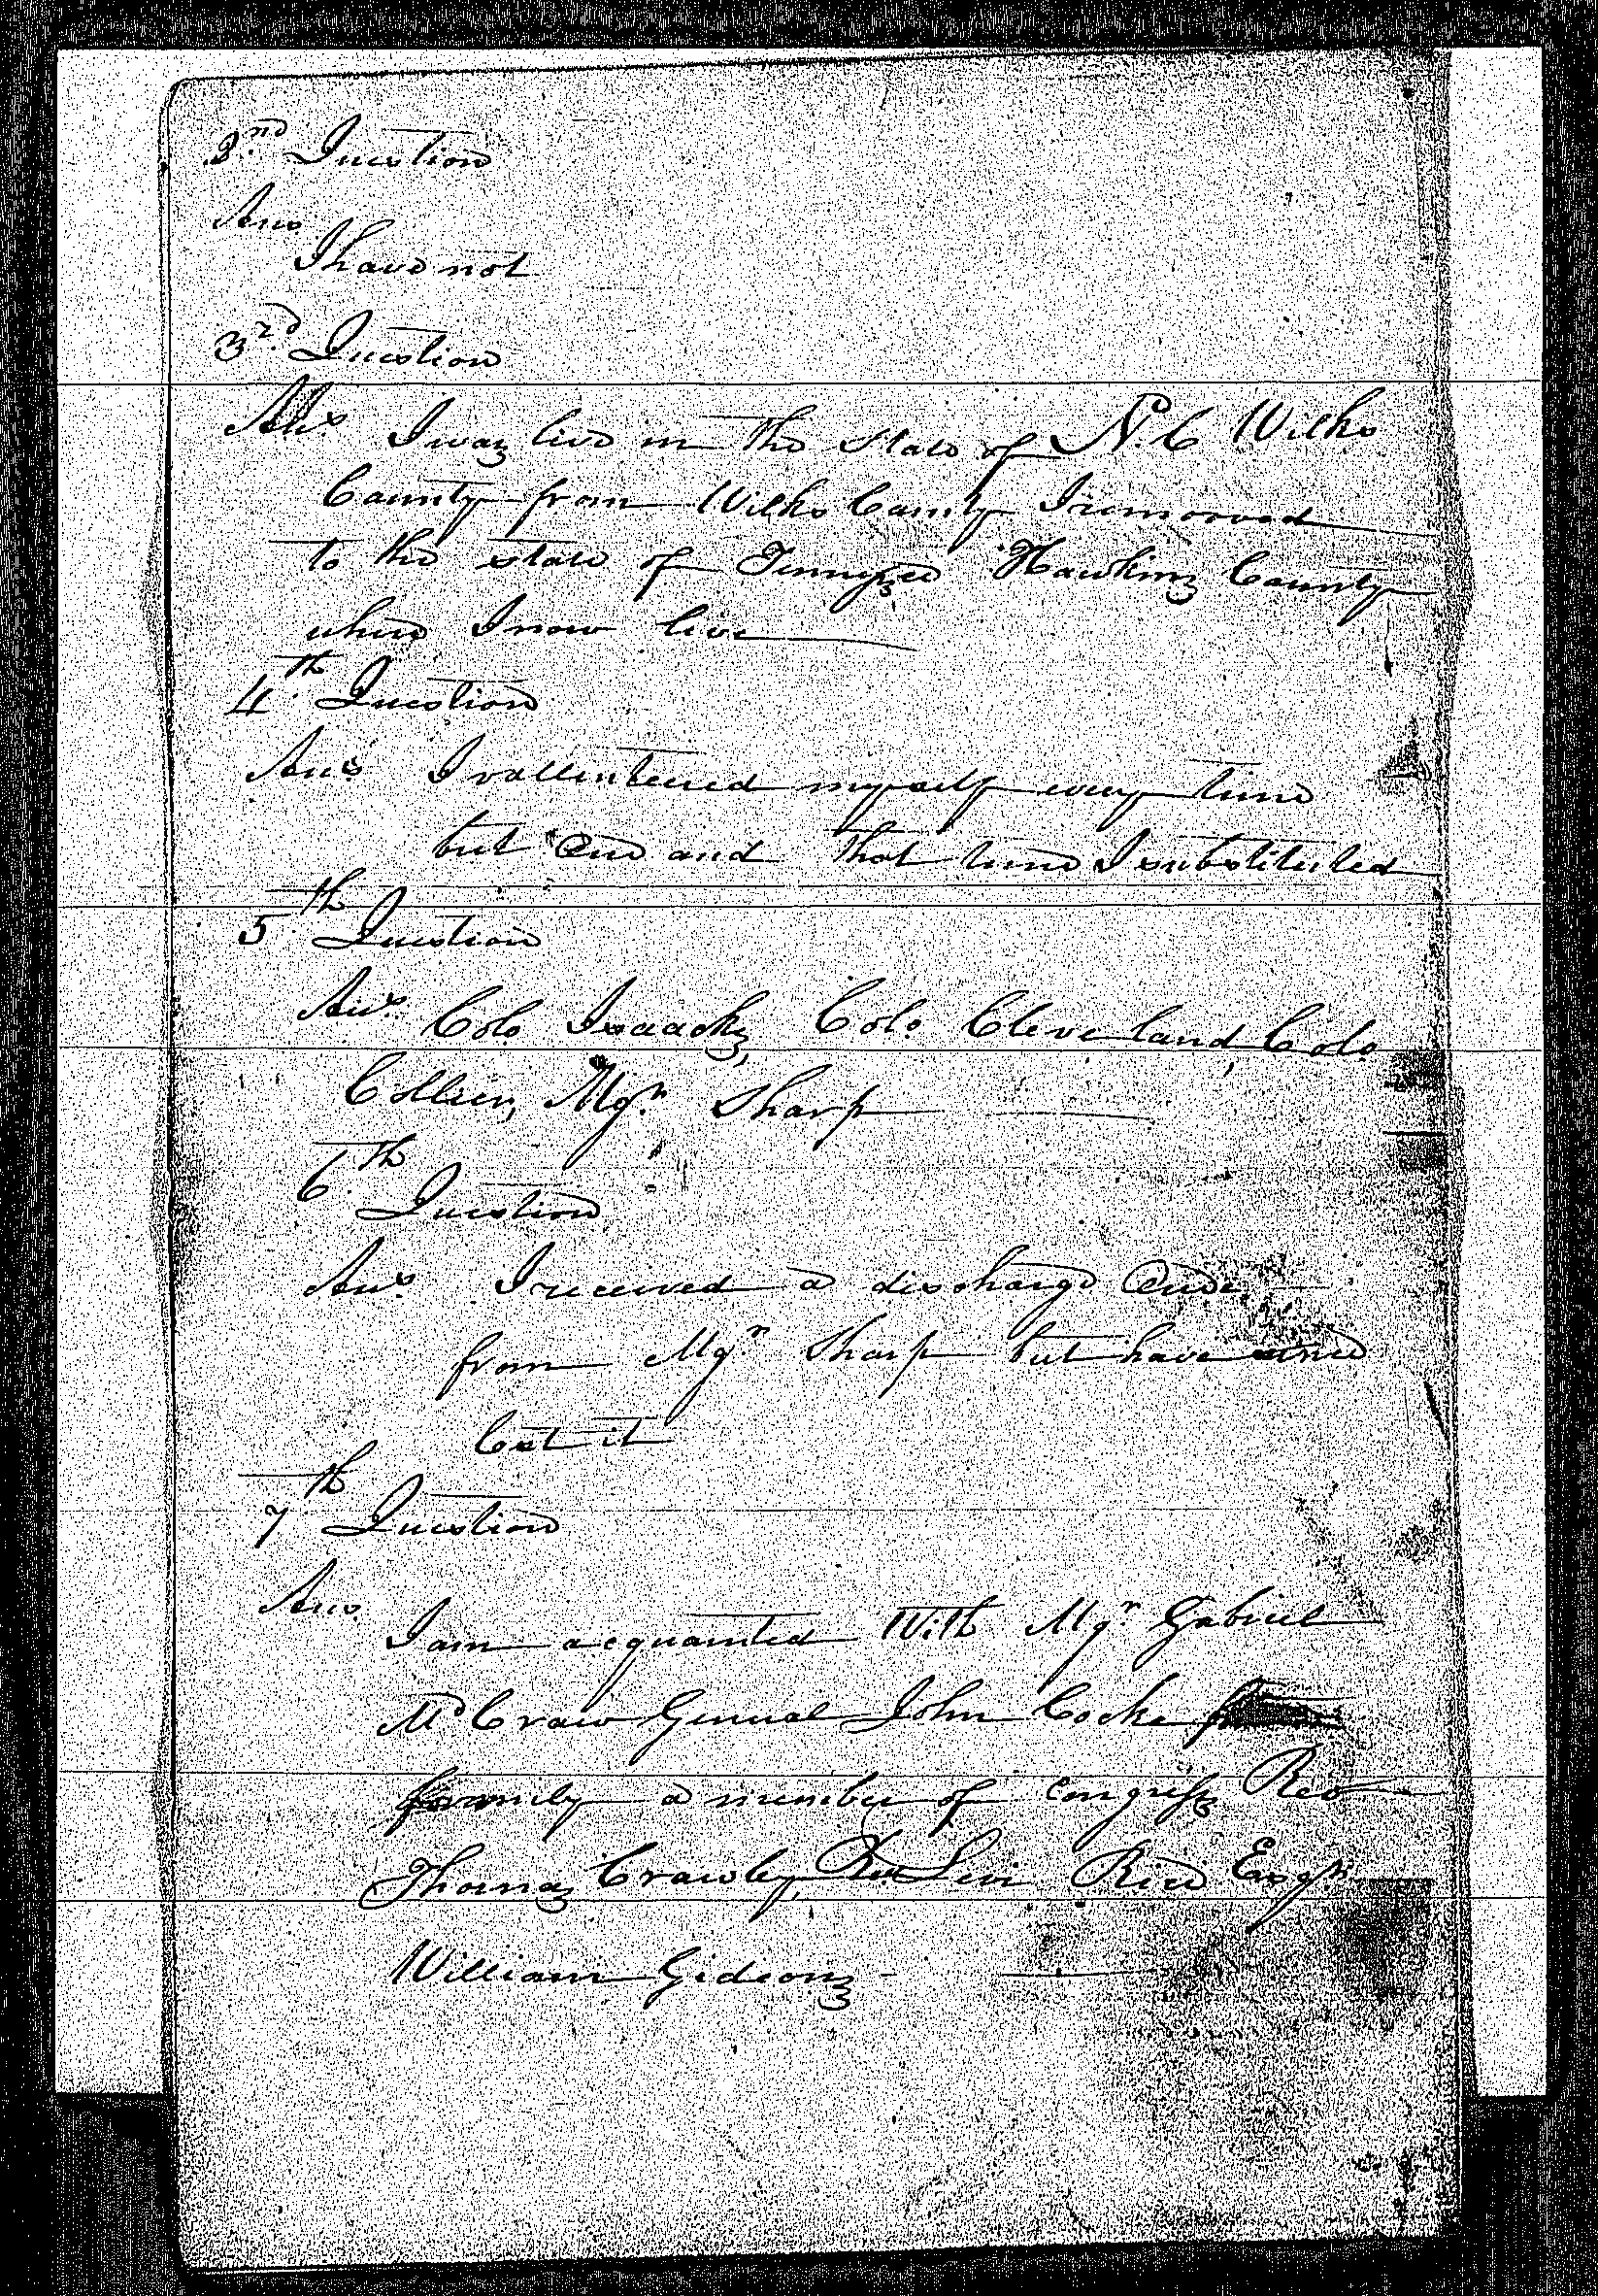 2nd Question
Ans
I have not
3rd Question
Ans I was live in the state of N. C Wilks
County from Wilks County I remooved
to the state of Tennessee Hawkins County
where I now live
4th Question
Ans I vallenteered myself every time
but one and that time I substituted
5th Question
Ans Colo Isaacks, Colo Cleveland, Colo
Collier, Mgr Sharp
6th
Question
Ans I received a discharge once
from Mgr Sharp but have since
lost it
7th Question
Ans
I am acquanted With Mgr Gabriel
McCraw General John Cocke
formely a member of Congress Rev
Thomas Crawley, Levi Rice Esqr
William Gideons